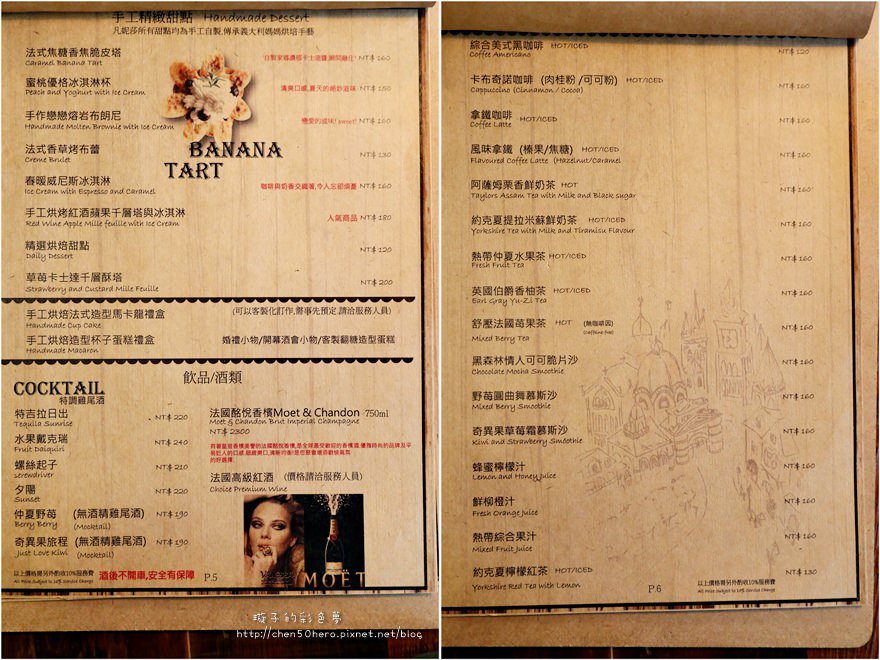 手工精緻甜點 Handmade Dessert
凡妮莎所有甜點均為手工自製,傳承義大利媽媽烘焙手藝
法式焦糖香焦脆皮塔
Caramel Banana Tart
自製家鄉濃郁卡士達醬,瞬間融化! NT$ 160
蜜桃優格冰淇淋杯
Peach and Yoghurt with Ice Cream
清爽口感,夏天的絕妙滋味 NT$ 150
手作戀戀熔岩布朗尼
Handmade Molten Brownie with Ice Cream
戀愛的滋味! sweet! NT$ 160
法式香草烤布蕾
Creme Brulet
NT$ 130
BANANA
TART
春暖威尼斯冰淇淋
Ice Cream with Espresso and Caramel
咖啡與奶香交織著,令人忘卻煩憂 NT$ 160
手工烘烤紅酒蘋果千層塔與冰淇淋
Red Wine Apple Mille feuille with Ice Cream
人氣商品 NT$ 180
精選烘焙甜點
Daily Dessert
NT$ 120
草莓卡士達千層酥塔
Strawberry and Custard Mille Feuille
NT$ 200
手工烘焙法式造型馬卡龍禮盒
Handmade Cup Cake
(可以客製化訂作,需事先預定,請洽服務人員)
手工烘焙造型杯子蛋糕禮盒
Handmade Macaron
婚禮小物/開幕酒會小物/客製翻糖造型蛋糕
飲品/酒類
COCKTAIL
特調雞尾酒
特吉拉日出 NT$ 220
Tequila Sunrise
水果戴克瑞 NT$ 240
Fruit Daiquiri
螺絲起子 NT$ 210
screwdriver
夕陽 NT$ 220
Sunset
仲夏野莓 (無酒精雞尾酒) NT$ 190
Berry Berry (Mocktail)
奇異果旅程 (無酒精雞尾酒) NT$ 190
Just Love Kiwi (Mocktail)
法國酩悅香檳Moet & Chandon 750ml
Moet & Chandon Brut Imperial Champagne
NT$ 2300
法國高級紅酒 (價格請洽服務人員)
Choice Premium Wine
MOËT
以上價格需另外酌收10%服務費
All Price Subject to 10% Service Charge
酒後不開車,安全有保障
P.5
綜合美式黑咖啡 HOT/ICED
Coffee Americano
NT$ 120
卡布奇諾咖啡 (肉桂粉 /可可粉) HOT/ICED
Cappuccino (Cinnamon / Cocoa)
NT$ 160
拿鐵咖啡 HOT/ICED
Coffee Latte
NT$ 160
風味拿鐵 (榛果/焦糖) HOT/ICED
Flavoured Coffee Latte (Hazelnut/Caramel
NT$ 160
阿薩姆栗香鮮奶茶 HOT
Taylors Assam Tea with Milk and Black sugar
NT$ 160
約克夏提拉米蘇鮮奶茶 HOT/ICED
Yorkshire Tea with Milk and Tiramisu Flavour
NT$ 160
熱帶仲夏水果茶 HOT/ICED
Fresh Fruit Tea
NT$ 160
英國伯爵香柚茶 HOT/ICED
Earl Gray Yu-Zi Tea
NT$ 160
舒壓法國莓果茶 HOT (無咖啡因)
Mixed Berry Tea (Caffeine free)
NT$ 160
黑森林情人可可脆片沙
Chocolate Mocha Smoothie
NT$ 160
野莓圓曲舞慕斯沙
Mixed Berry Smoothie
NT$ 160
奇異果草莓霜慕斯沙
Kiwi and Strawberry Smoothie
NT$ 160
蜂蜜檸檬汁
Lemon and Honey Juice
NT$ 160
鮮柳橙汁
Fresh Orange Juice
NT$ 160
熱帶綜合果汁
Mixed Fruit Juice
NT$ 160
約克夏檸檬紅茶 HOT/ICED
Yorkshire Red Tea with Lemon
NT$ 130
P.6
以上價格需另外酌收10%服務費
All Price Subject to 10% Service Charge
璇子的彩色夢
http://chen50hero.pixnet.net/blog